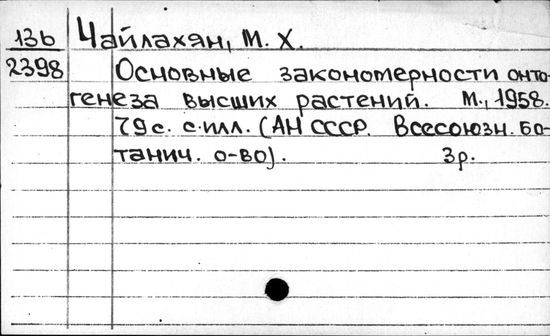 13b Чайлахян, М. Х.
2398 Основные закономерности онто-
генеза высших растений. М., 1958.
79с. с илл. (АН СССР. Всесоюзн. бо-
танич. о-во). 3р.